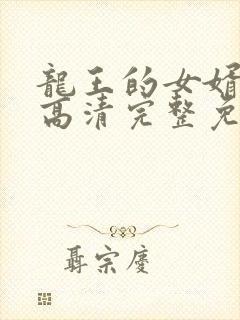 龍王的女婿
高清完整免
聶宗慶